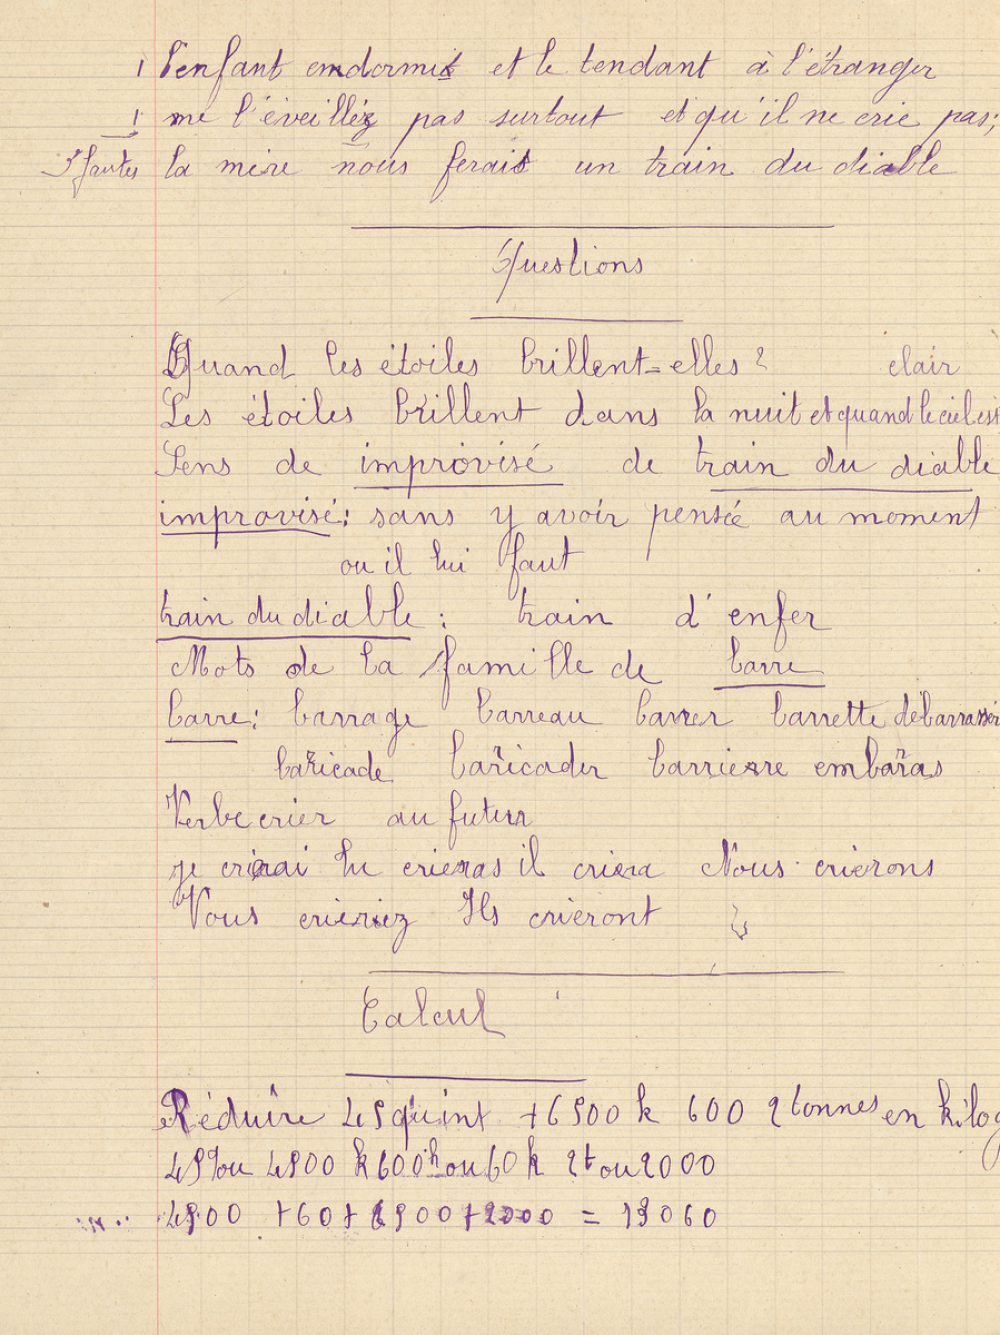 1 l'enfant endormit et le tendant à l'étranger
1 ne l'éveillez pas surtout et qu'il ne crie pas;
3 fautes la mère nous ferait un train du diable
Questions
Quand les étoiles brillent-elles? clair
Les étoiles brillent dans la nuit et quand le ciel est
Sens de improvisé de train du diable
improvisé: sans y avoir pensée au moment
ou il lui faut
train du diable: train d'enfer
Mots de la famille de barre
barre: barrage barreau barrer barrette débarrasser
baricade baricader barrierre embaras
Verbe crier au futur
je crierai tu crieras il criera Nous crierons
Vous crieriez Ils crieront
Calcul
Réduire 49 quint + 6900 k 600 2 tonnes en kilog
49 ou 4900 k 600 h ou 60 k 2t ou 2000
4900 + 60 + 6900 + 2000 = 13060